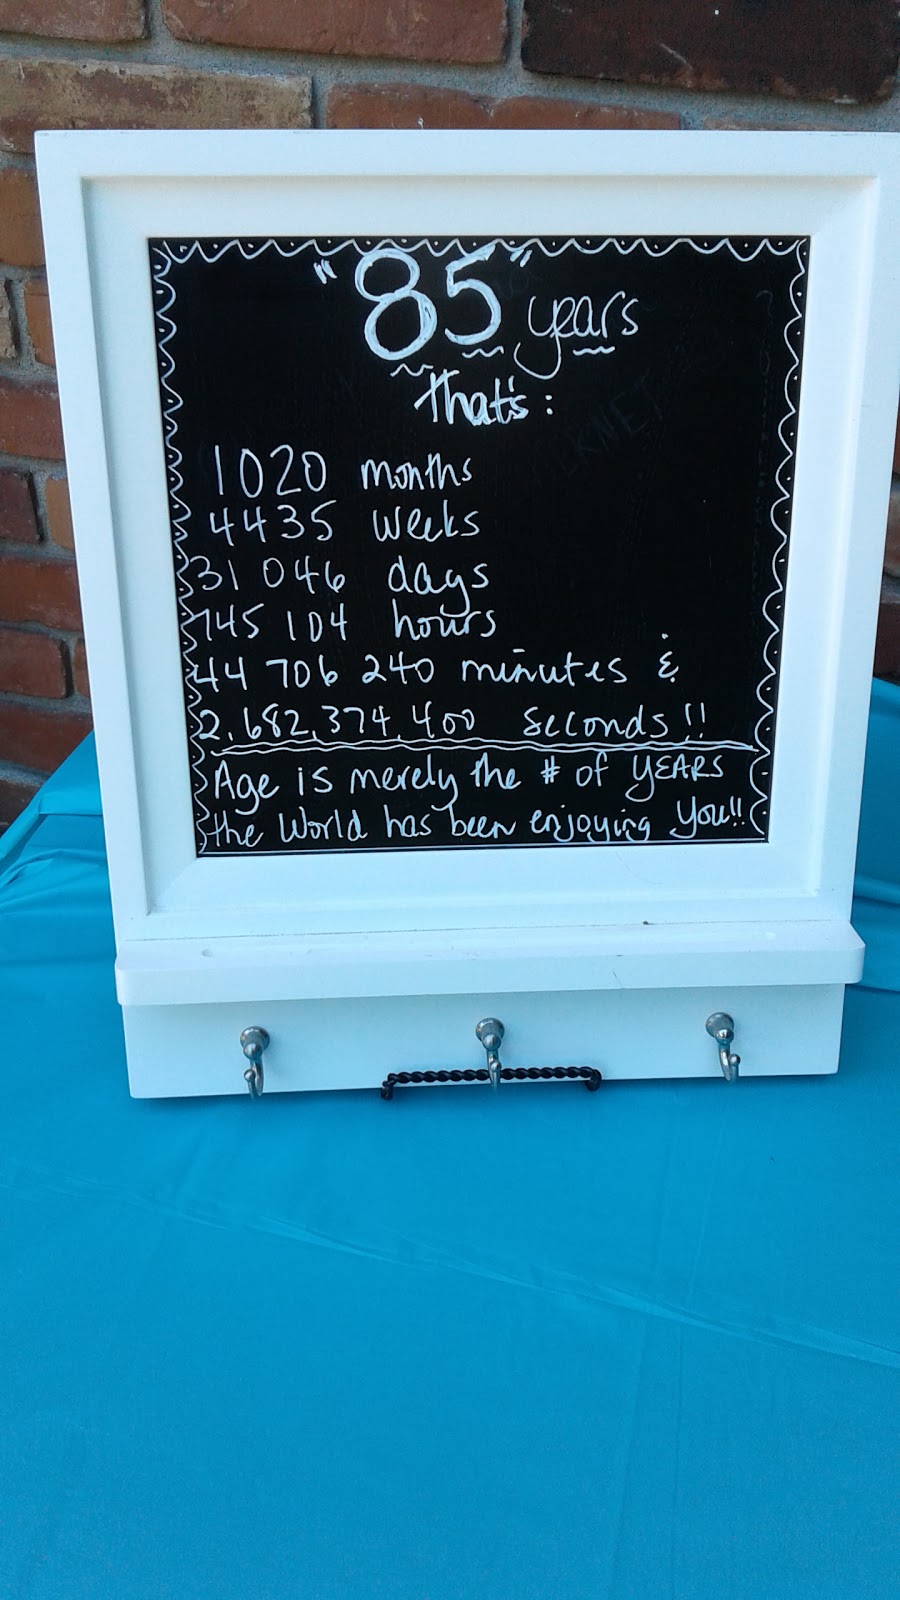 "85" years
That's:
1020 months
4435 weeks
31 046 days
745 104 hours
44 706 240 minutes &
2,682,374,400 seconds!!
Age is merely the # of YEARS
the World has been enjoying You!!